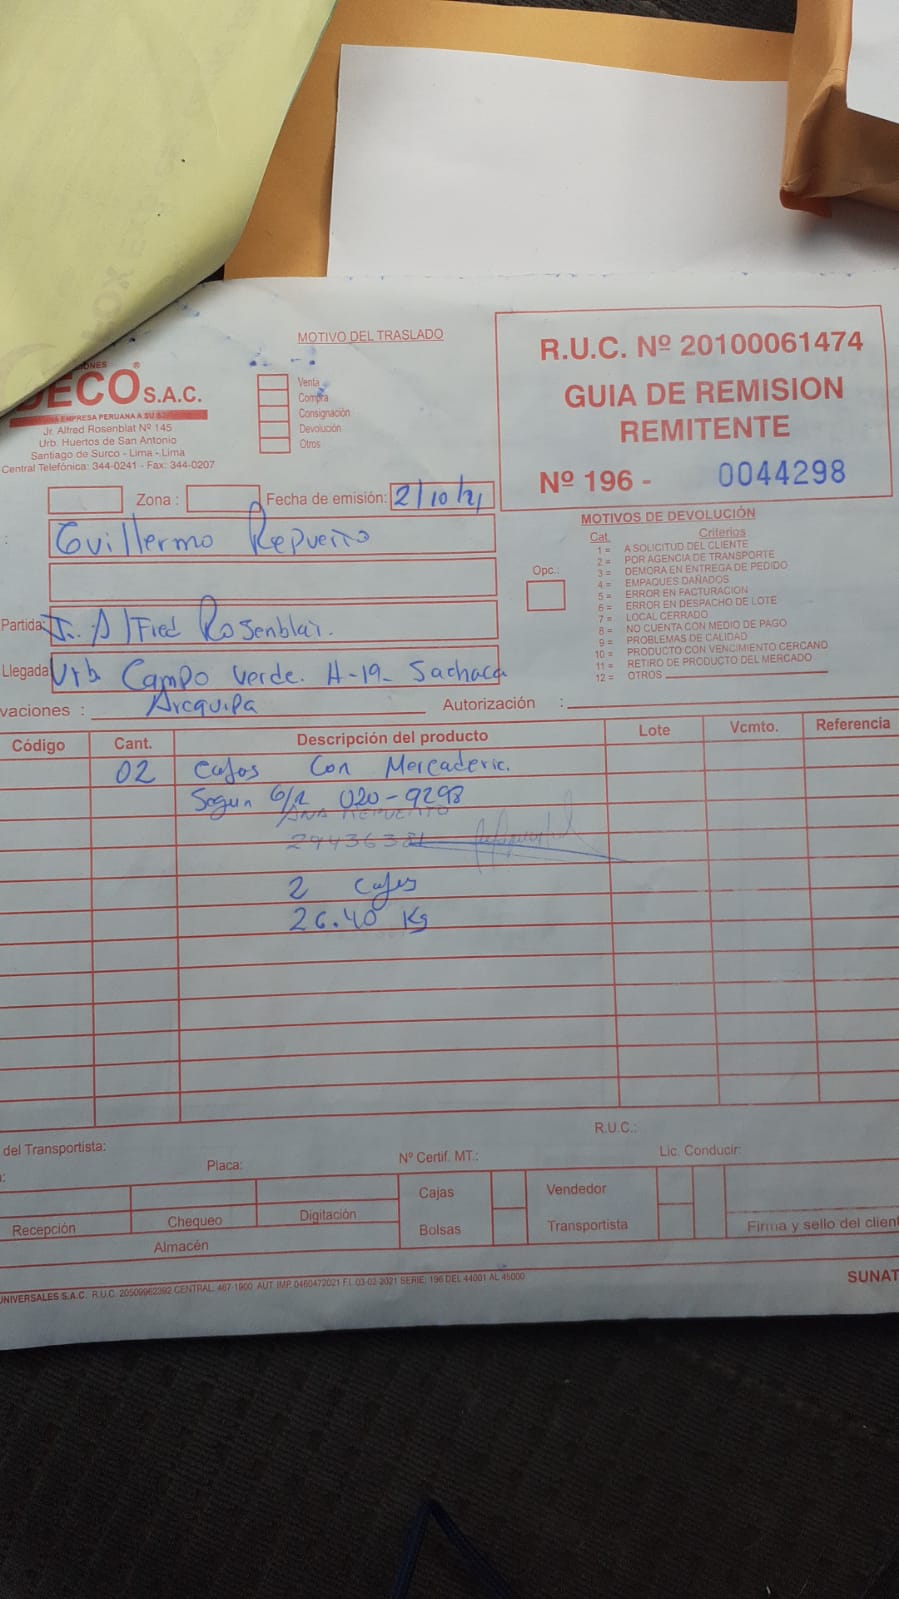 MOTIVO DEL TRASLADO
Venta
Compra
Consignación
Devolución
Otros
DECO S.A.C.
EMPRESA PERUANA A SU
Jr. Alfred Rosenblat Nº 145
Urb. Huertos de San Antonio
Santiago de Surco - Lima - Lima
Central Telefónica: 344-0241 - Fax: 344-0207
R.U.C. Nº 20100061474
GUIA DE REMISION
REMITENTE
Nº 196 - 0044298
Zona :
Fecha de emisión: 2/10/21
Guillermo Repuello
Partida: Jr. Alfred Rosenblat.
Llegada Urb Campo Verde. A-19- Sachaca
Arequipa
vaciones :
Autorización :
Opc.:
MOTIVOS DE DEVOLUCIÓN
Cat. Criterios
1 = A SOLICITUD DEL CLIENTE
2 = POR AGENCIA DE TRANSPORTE
3 = DEMORA EN ENTREGA DE PEDIDO
4 = EMPAQUES DAÑADOS
5 = ERROR EN FACTURACION
6 = ERROR EN DESPACHO DE LOTE
7 = LOCAL CERRADO
8 = NO CUENTA CON MEDIO DE PAGO
9 = PROBLEMAS DE CALIDAD
10 = PRODUCTO CON VENCIMIENTO CERCANO
11 = RETIRO DE PRODUCTO DEL MERCADO
12 = OTROS
Código Cant. Descripción del producto Lote Vcmto. Referencia
02 Cajas Con Mercaderia.
Segun G/R 020-9298
ANA REPUELLO
29436381
2 Cajas
26.40 Kg
del Transportista:
R.U.C.:
Placa:
Nº Certif. MT.:
Lic. Conducir:
Recepción
Chequeo
Digitación
Almacén
Cajas
Bolsas
Vendedor
Transportista
Firma y sello del client
UNIVERSALES S.A.C. R.U.C. 20509962392 CENTRAL: 467-1900 AUT. IMP. 0460472021 F.I. 03-02-2021 SERIE: 196 DEL 44001 AL 45000
SUNAT